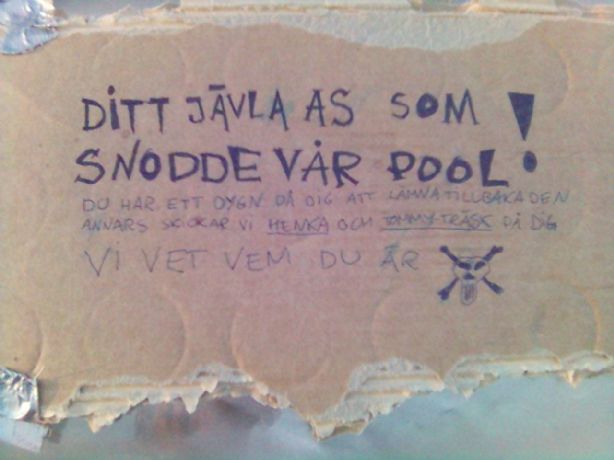 DITT JÄVLA AS SOM
SNODDE VÅR POOL!
DU HAR ETT DYGN PÅ DIG ATT LÄMNA TILLBAKA DEN
ANNARS SKICKAR VI HENKA OCH TOMMY-TRÄSK PÅ DIG
VI VET VEM DU ÄR